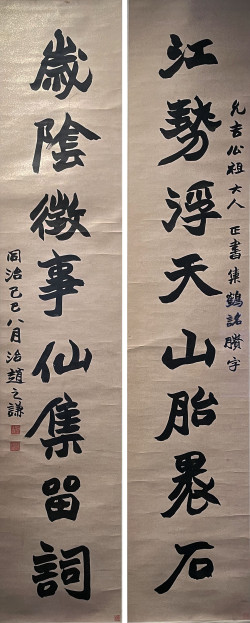 允吉公祖大人正書集鶴銘賸字
江勢浮天山胎褁石
歲陰徵事仙集留詞
同治己巳八月治趙之謙